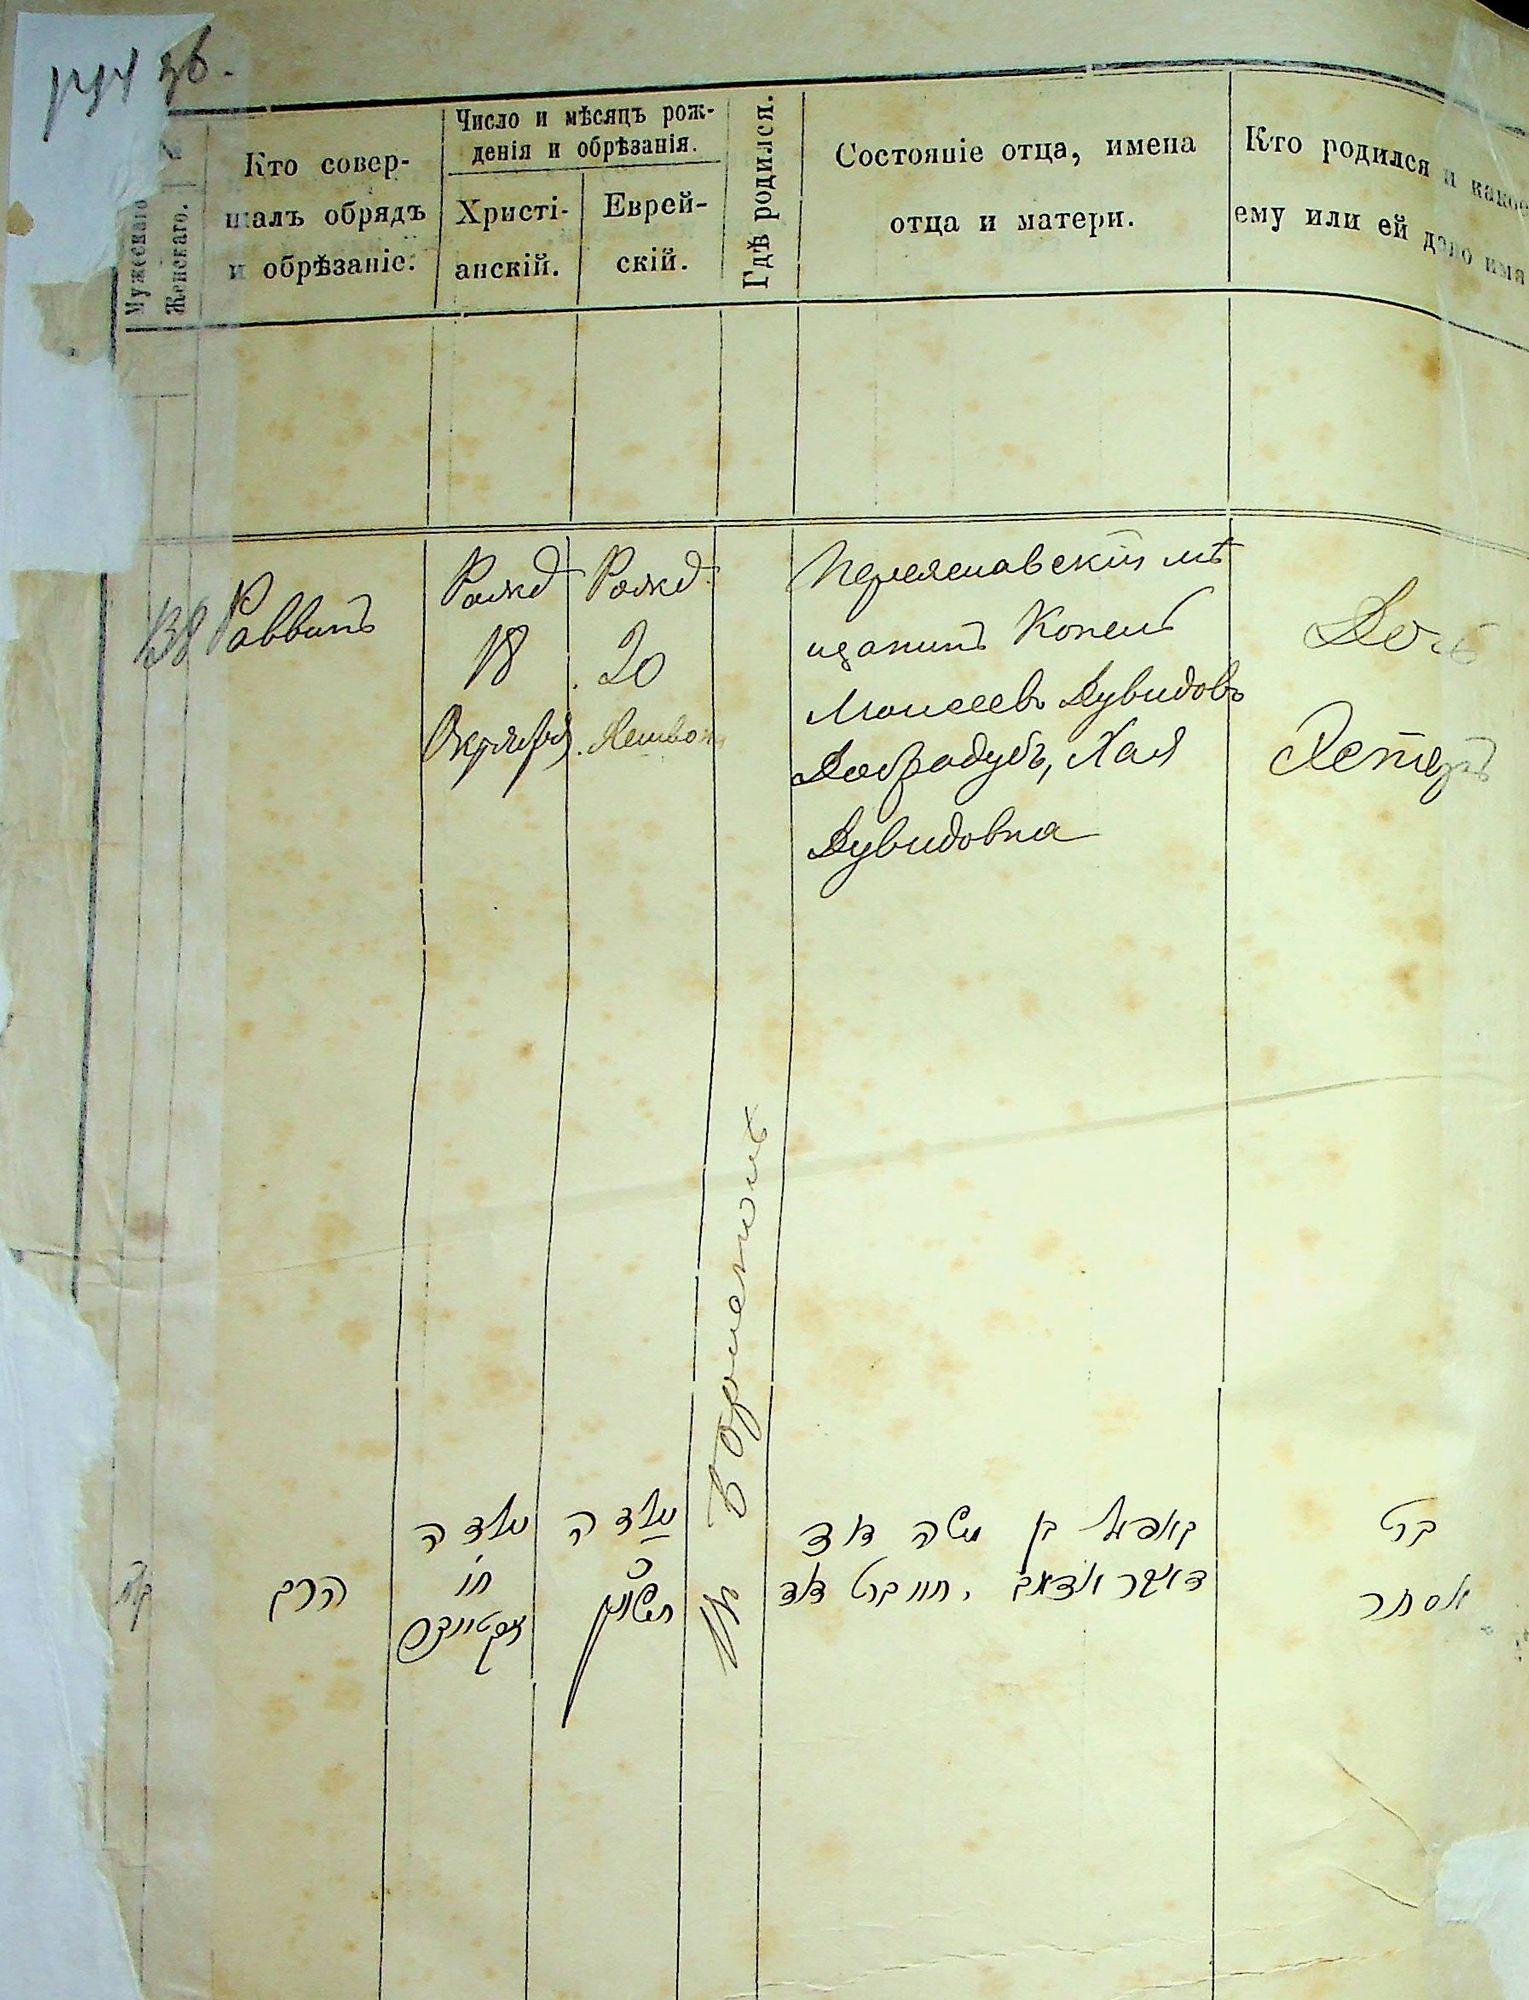 Мужескаго
Женскаго.
Кто совер-
шалъ обрядъ
и обрѣзаніе.
Число и мѣсяцъ рож-
денія и обрѣзанія.
Христі-
анскій.
Еврей-
скій.
Гдѣ родился.
Состояніе отца, имена
отца и матери.
Кто родился и какое
ему или ей дано имя
138
Раввинъ
Рожд
18
Октября
Рожд.
20
Хешвона
въ Кременчугѣ
Переяславскій мѣ
щанинъ Копель
Моисеевъ Дувидовъ
Хая
Дувидовна
Дочь
Эстеръ
הרב
נולדה
ח״י
נולדה
כ׳
חשון
קאפל בן משה דוד
חי׳ ברט דוד
ברט
אסתר